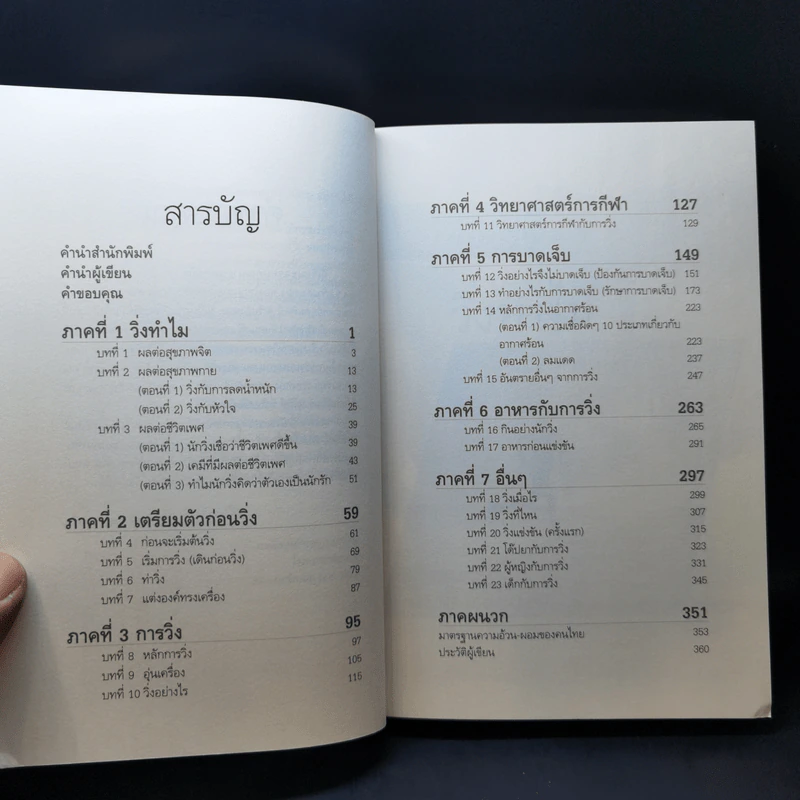 สารบัญ
คำนำสำนักพิมพ์
คำนำผู้เขียน
คำขอบคุณ
ภาคที่ 1 วิ่งทำไม 1
บทที่ 1 ผลต่อสุขภาพจิต 3
บทที่ 2 ผลต่อสุขภาพกาย 13
(ตอนที่ 1) วิ่งกับการลดน้ำหนัก 13
(ตอนที่ 2) วิ่งกับหัวใจ 25
บทที่ 3 ผลต่อชีวิตเพศ 39
(ตอนที่ 1) นักวิ่งเชื่อว่าชีวิตเพศดีขึ้น 39
(ตอนที่ 2) เคมีที่มีผลต่อชีวิตเพศ 43
(ตอนที่ 3) ทำไมนักวิ่งคิดว่าตัวเองเป็นนักรัก 51
ภาคที่ 2 เตรียมตัวก่อนวิ่ง 59
บทที่ 4 ก่อนจะเริ่มต้นวิ่ง 61
บทที่ 5 เริ่มการวิ่ง (เดินก่อนวิ่ง) 69
บทที่ 6 ท่าวิ่ง 79
บทที่ 7 แต่งองค์ทรงเครื่อง 87
ภาคที่ 3 การวิ่ง 95
บทที่ 8 หลักการวิ่ง 97
บทที่ 9 อุ่นเครื่อง 105
บทที่ 10 วิ่งอย่างไร 115
ภาคที่ 4 วิทยาศาสตร์การกีฬา 127
บทที่ 11 วิทยาศาสตร์การกีฬากับการวิ่ง 129
ภาคที่ 5 การบาดเจ็บ 149
บทที่ 12 วิ่งอย่างไรจึงไม่บาดเจ็บ (ป้องกันการบาดเจ็บ) 151
บทที่ 13 ทำอย่างไรกับการบาดเจ็บ (รักษาการบาดเจ็บ) 173
บทที่ 14 หลักการวิ่งในอากาศร้อน 223
(ตอนที่ 1) ความเชื่อผิดๆ 10 ประเภทเกี่ยวกับ
อากาศร้อน 223
(ตอนที่ 2) ลมแดด 237
บทที่ 15 อันตรายอื่นๆ จากการวิ่ง 247
ภาคที่ 6 อาหารกับการวิ่ง 263
บทที่ 16 กินอย่างนักวิ่ง 265
บทที่ 17 อาหารก่อนแข่งขัน 291
ภาคที่ 7 อื่นๆ 297
บทที่ 18 วิ่งเมื่อไร 299
บทที่ 19 วิ่งที่ไหน 307
บทที่ 20 วิ่งแข่งขัน (ครั้งแรก) 315
บทที่ 21 โด๊ปยากับการวิ่ง 323
บทที่ 22 ผู้หญิงกับการวิ่ง 331
บทที่ 23 เด็กกับการวิ่ง 345
ภาคผนวก 351
มาตรฐานความอ้วน-ผอมของคนไทย 353
ประวัติผู้เขียน 360